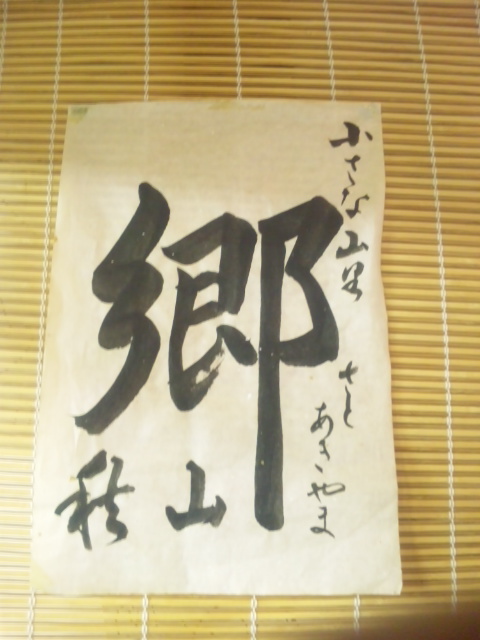 小さな山里
さと
あきやま
郷
秋山